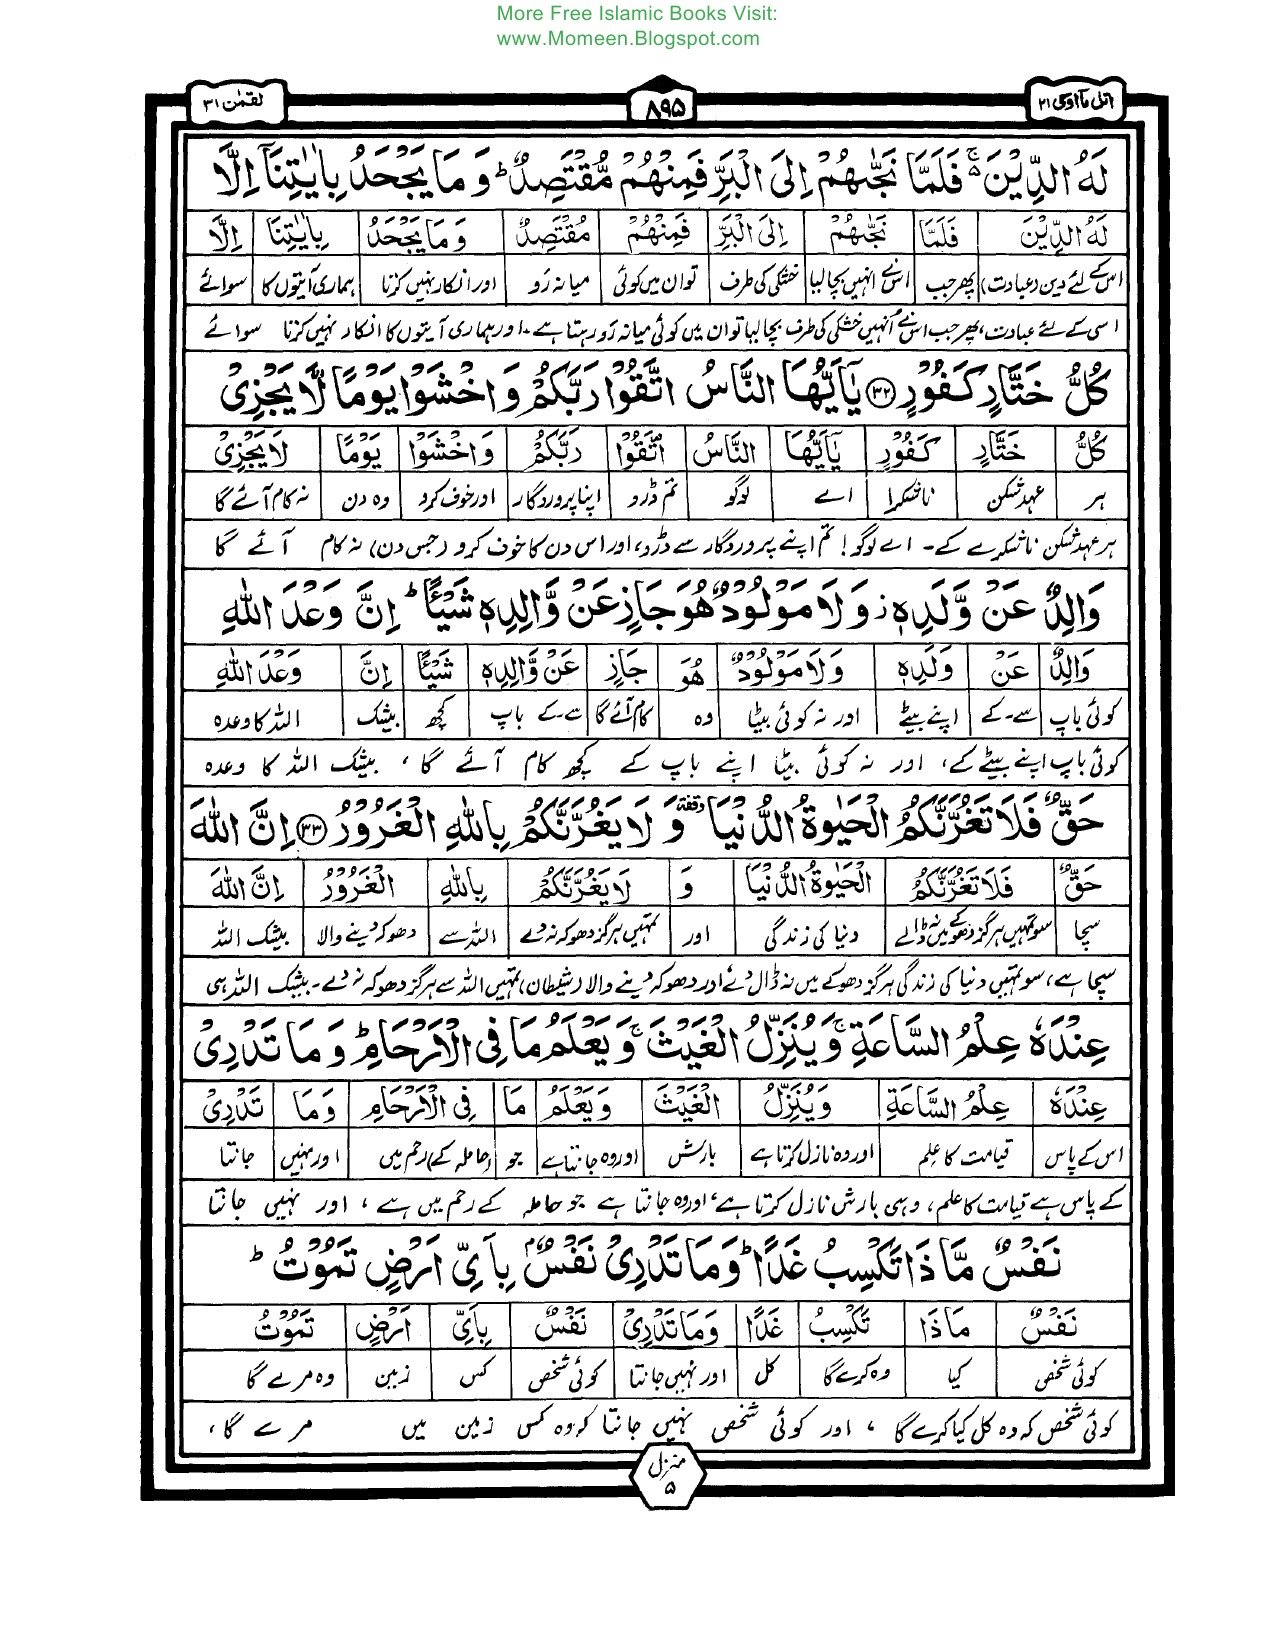 More Free Islamic Books Visit:
www.Momeen.Blogspot.com
اتل مآ اوحی ۲۱
۸۹۵
لقمٰن ۳۱
لَهُ الدِّيْنَ ۚ۬ فَلَمَّا نَجّٰىهُمْ اِلَى الْبَرِّ فَمِنْهُمْ مُّقْتَصِدٌ ؕ وَ مَا يَجْحَدُ بِاٰيٰتِنَاۤ اِلَّا
لَهُ الدِّيْنَ فَلَمَّا نَجّٰىهُمْ اِلَى الْبَرِّ فَمِنْهُمْ مُقْتَصِدٌ وَ مَا يَجْحَدُ بِاٰيٰتِنَا اِلَّا
اس کے لئے دین (عبادت) پھر جب اس نے انہیں بچا لیا خشکی کی طرف تو ان میں کوئی میانہ رَو اور انکار نہیں کرتا ہماری آیتوں کا سوائے
اسی کے لئے عبادت، پھر جب اس نے اُنہیں خشکی کی طرف بچا لیا تو ان میں کوئی میانہ رَو رہتا ہے۔ اور ہماری آیتوں کا انکار نہیں کرتا سوائے
كُلُّ خَتَّارٍ كَفُوْرٍ ۝۳۲ يٰۤاَيُّهَا النَّاسُ اتَّقُوْا رَبَّكُمْ وَ اخْشَوْا يَوْمًا لَّا يَجْزِيْ
كُلُّ خَتَّارٍ كَفُوْرٍ يٰۤاَيُّهَا النَّاسُ اتَّقُوْا رَبَّكُمْ وَ اخْشَوْا يَوْمًا لَا يَجْزِيْ
ہر عہد شکن ناشکرا اے لوگو تم ڈرو اپنا پروردگار اور خوف کرو وہ دن نہ کام آئے گا
ہر عہد شکن ناشکرے کے۔ اے لوگو! تم اپنے پروردگار سے ڈرو، اور اس دن کا خوف کرو (جس دن) نہ کام آئے گا
وَالِدٌ عَنْ وَّلَدِهٖ ؗ وَ لَا مَوْلُوْدٌ هُوَ جَازٍ عَنْ وَّالِدِهٖ شَيْـًٔا ؕ اِنَّ وَعْدَ اللّٰهِ
وَالِدٌ عَنْ وَلَدِهٖ وَ لَا مَوْلُوْدٌ هُوَ جَازٍ عَنْ وَّالِدِهٖ شَيْـًٔا اِنَّ وَعْدَ اللّٰهِ
کوئی باپ سے۔ کے اپنے بیٹے اور نہ کوئی بیٹا وہ کام آئے گا سے۔ کے باپ کچھ بیشک اللہ کا وعدہ
کوئی باپ اپنے بیٹے کے، اور نہ کوئی بیٹا اپنے باپ کے کچھ کام آئے گا، بیشک اللہ کا وعدہ
حَقٌّ فَلَا تَغُرَّنَّكُمُ الْحَيٰوةُ الدُّنْيَا وقفة وَ لَا يَغُرَّنَّكُمْ بِاللّٰهِ الْغَرُوْرُ ۝۳۳ اِنَّ اللّٰهَ
حَقٌّ فَلَا تَغُرَّنَّكُمُ الْحَيٰوةُ الدُّنْيَا وَ لَا يَغُرَّنَّكُمْ بِاللّٰهِ الْغَرُوْرُ اِنَّ اللّٰهَ
سچا سو تمہیں ہرگز دھوکے میں نہ ڈالے دنیا کی زندگی اور تمہیں ہرگز دھوکہ نہ دے اللہ سے دھوکہ دینے والا بیشک اللہ
سچا ہے، سو تمہیں دنیا کی زندگی ہرگز دھوکے میں نہ ڈال دے اور دھوکہ دینے والا (شیطان) تمہیں اللہ سے ہرگز دھوکہ نہ دے۔ بیشک اللہ ہی
عِنْدَهٗ عِلْمُ السَّاعَةِ ۚ وَ يُنَزِّلُ الْغَيْثَ ۚ وَ يَعْلَمُ مَا فِى الْاَرْحَامِ ؕ وَ مَا تَدْرِيْ
عِنْدَهٗ عِلْمُ السَّاعَةِ وَ يُنَزِّلُ الْغَيْثَ وَ يَعْلَمُ مَا فِى الْاَرْحَامِ وَمَا تَدْرِيْ
اس کے پاس قیامت کا علم اور وہ نازل کرتا ہے بارش اور وہ جانتا ہے جو (حاملہ کے) رحم میں اور نہیں جانتا
کے پاس ہے قیامت کا علم، وہی بارش نازل کرتا ہے، اور وہ جانتا ہے جو حاملہ کے رحم میں ہے، اور نہیں جانتا
نَفْسٌ مَّا ذَا تَكْسِبُ غَدًا ؕ وَ مَا تَدْرِيْ نَفْسٌۢ بِاَيِّ اَرْضٍ تَمُوْتُ ؕ
نَفْسٌ مَاذَا تَكْسِبُ غَدًا وَ مَا تَدْرِيْ نَفْسٌ بِاَيِّ اَرْضٍ تَمُوْتُ
کوئی شخص کیا وہ کرے گا کل اور نہیں جانتا کوئی شخص کس زمین وہ مرے گا
کوئی شخص کہ وہ کل کیا کرے گا، اور کوئی شخص نہیں جانتا کہ وہ کس زمین میں مرے گا،
منزل
۵